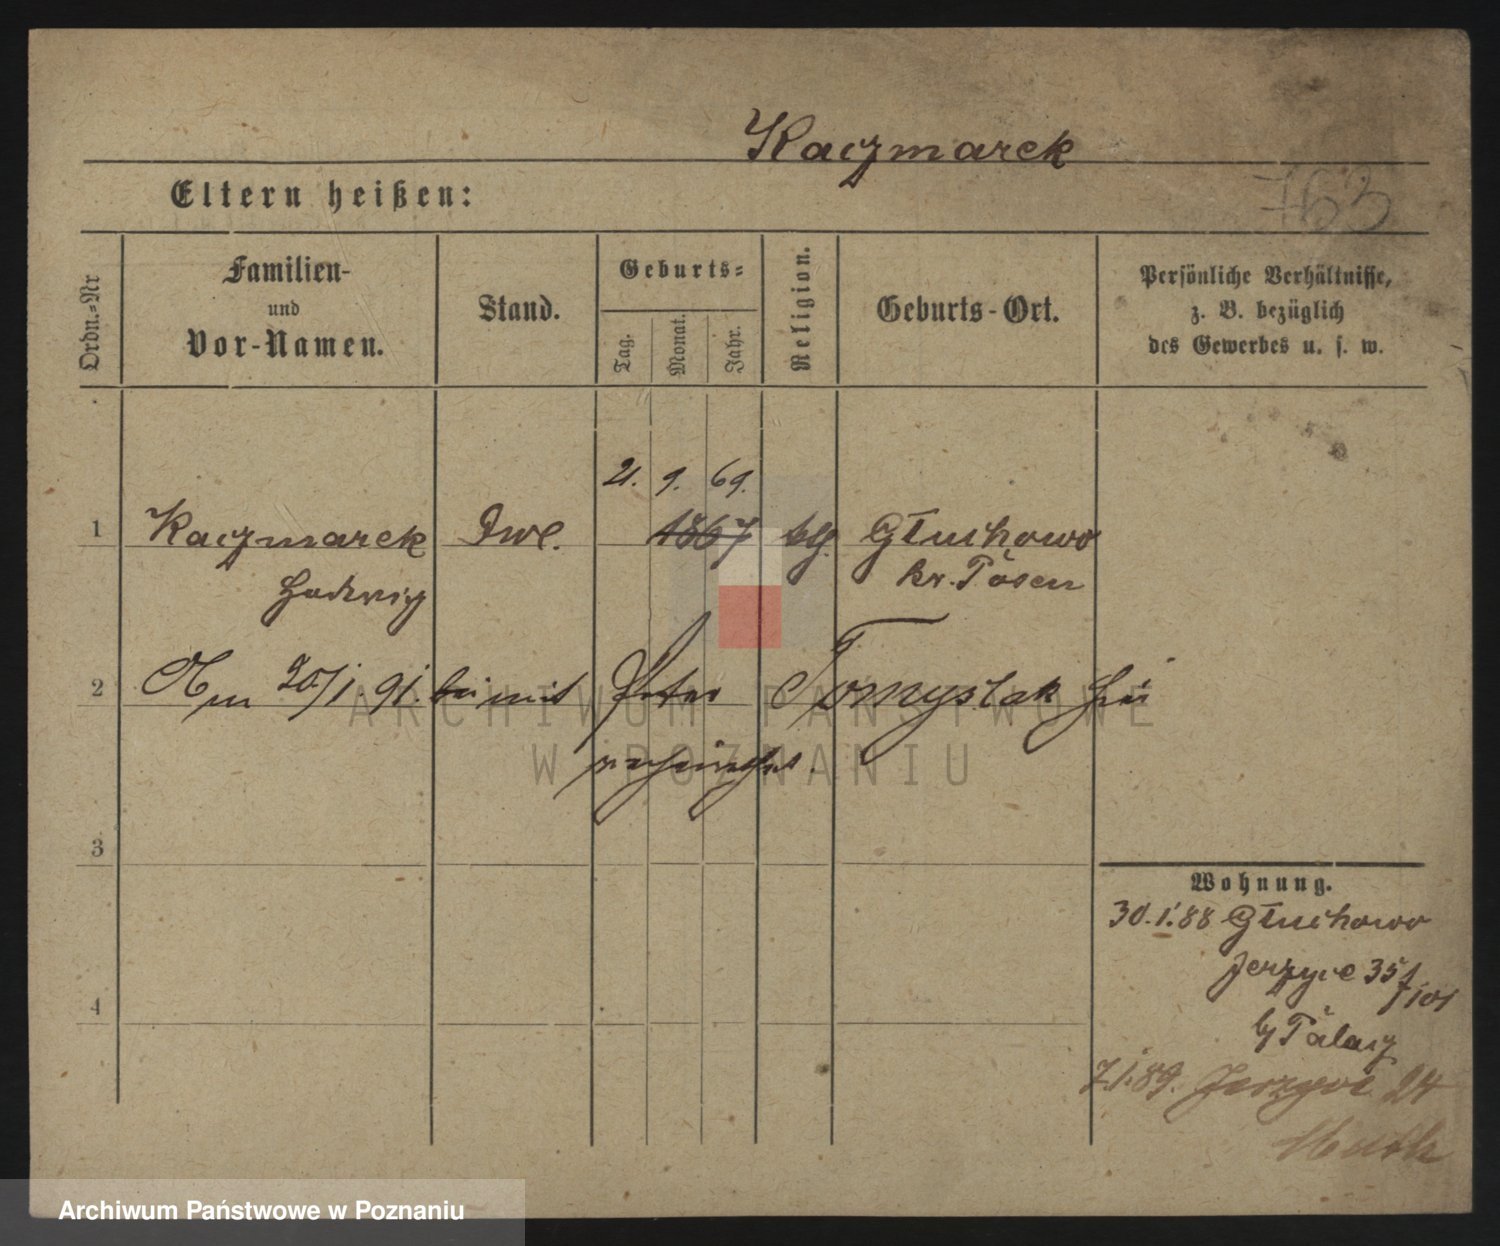 Kaczmarek
763
Eltern heißen:
Ordn.-Nr
Familien-
und
Vor-Namen.
Stand.
Geburts-
Tag.
Monat.
Jahr.
Religion.
Geburts-Ort.
Persönliche Verhältnisse,
z. B. bezüglich
des Gewerbes u. s. w.
21. 9. 69.
1 Kaczmarek 1867 Głuchowo
Hedwig kr. Posen
2 Am 20/1. 91. mit Peter Tomyslak hier
3
4
Wohnung.
30.1.88 Głuchowo
Jerzyce 35
101
7.1.89. Jerzyce 24
ARCHIWUM PAŃSTWOWE
W POZNANIU
Archiwum Państwowe w Poznaniu